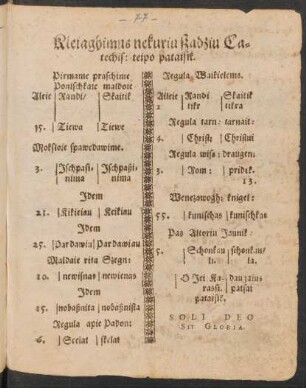 - 77 -
Kletaghimas nekuriu ßadziu Ca-
techis: teipo pataisik.
Pirmame praschime
Ponischkaie maldoie
Aleie | Randi/ | Skaitik
35. | Tiewa | Tiewe
Moksloie spawedawime.
3. | Ischpasti- | Ischpaßti-
nima | nima
Idem
21. | Kikieiau | Keikiau
Idem
25. | Pardawia | Pardawiau
Maldaie rita Szegn:
10. | newisnas | newienas
Idem
15. | nobaßnita | nobaßnista
Regula apie Padon:
6. | Sceiat | skelat
Regula Waikielems.
Aileie | Randi | Skaitik
2 | tikr | tikra
Regula tarn: tarnait:
4. | Christ: | Christui
Regula wiss: draugen:
3. | Rom: | pridek.
13.
Wenczawogh: knigel:
5. | kunischas | kunischkas
Pas Altoriu Jaunik:
5. | Schonkau | schonkau/
ic. | ic.
O Jei Ka- | daugiaus
rasit. | patsai
pataisik.
SOLI DEO
SIT GLORIA.